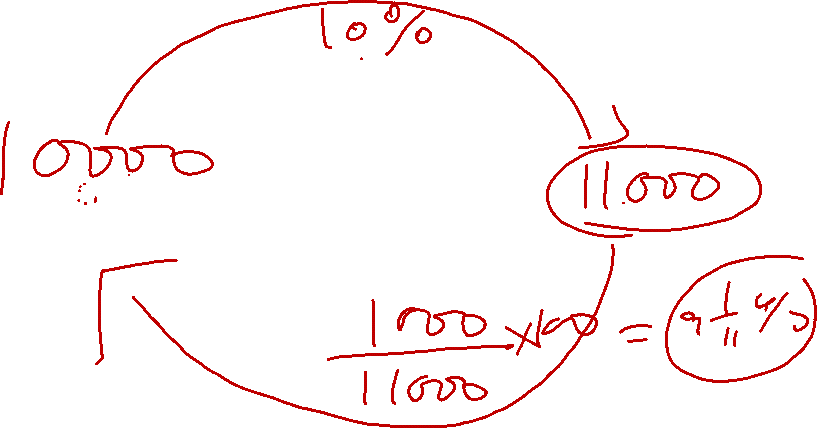 10%
10000
11000
1000/11000 ×100 = 9 1/11 %